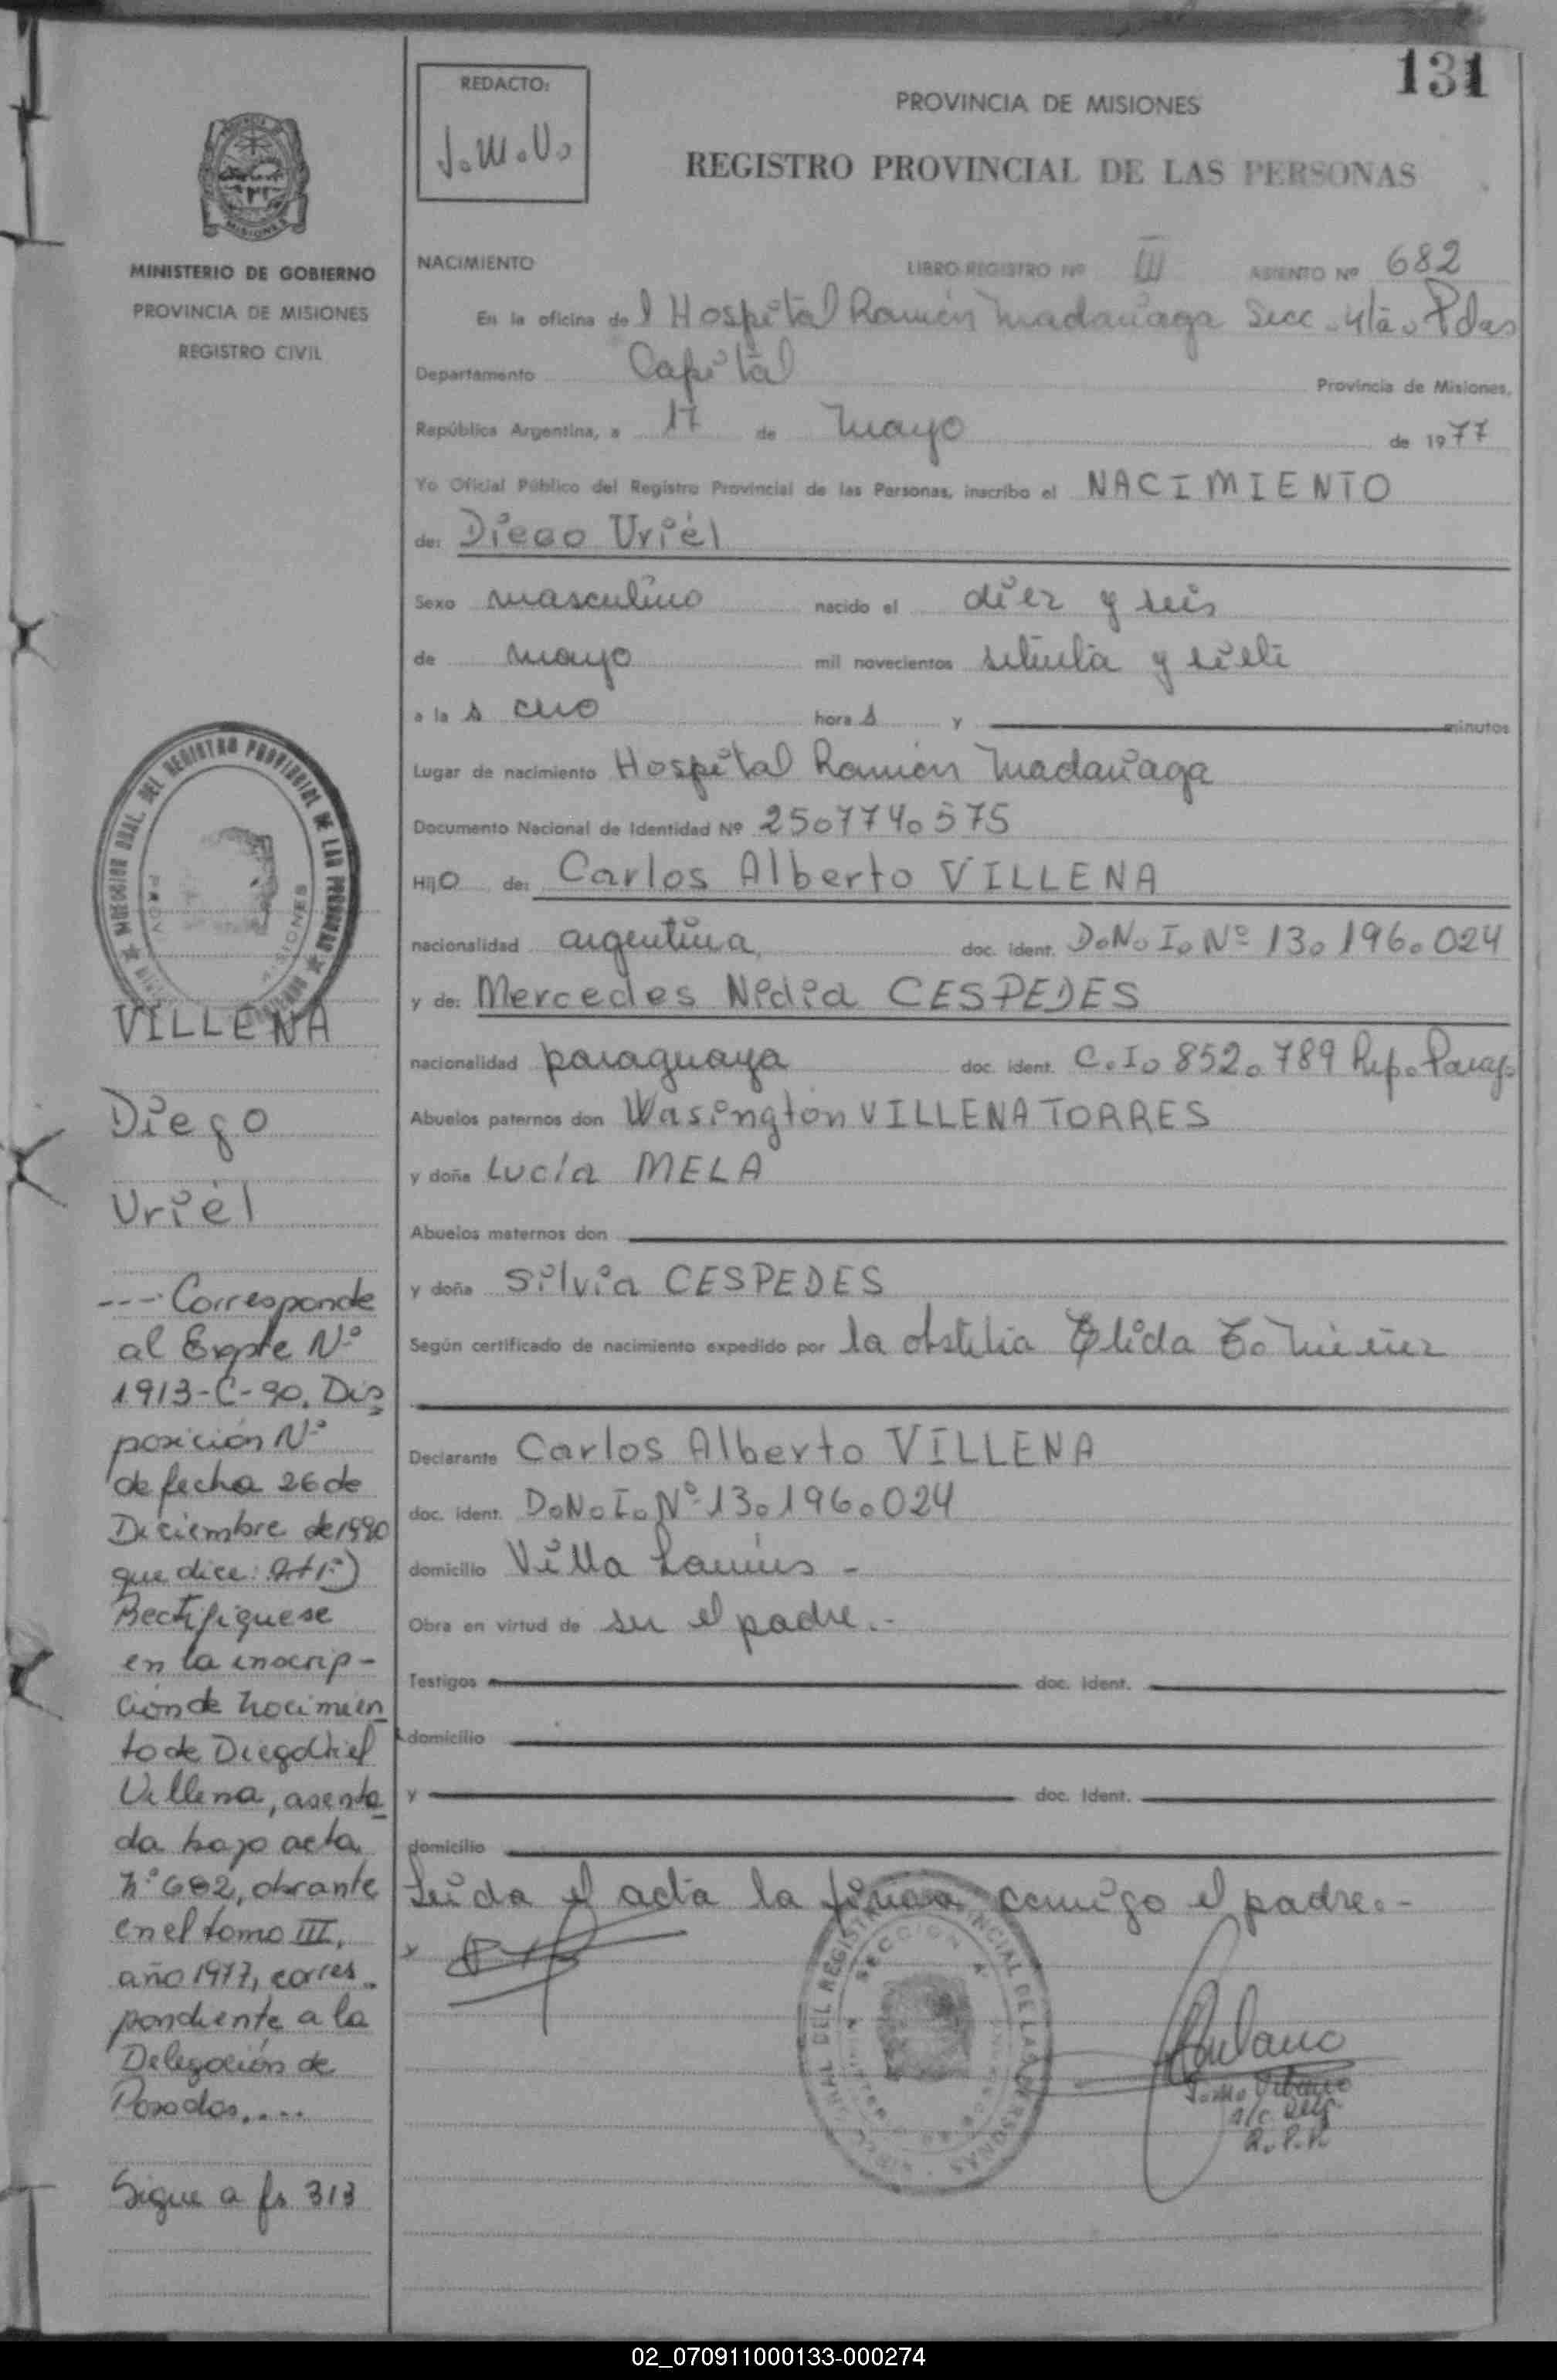 131
REDACTO:
J.M.U.
PROVINCIA DE MISIONES
REGISTRO PROVINCIAL DE LAS PERSONAS
MISIONES
MINISTERIO DE GOBIERNO
PROVINCIA DE MISIONES
REGISTRO CIVIL
NACIMIENTO LIBRO REGISTRO Nº III ASIENTO Nº 682
En la oficina del Hospital Ramón Madariaga Secc. 4ta. Pdas
Departamento Capital Provincia de Misiones,
República Argentina, a 17 de mayo de 1977
Yo Oficial Público del Registro Provincial de las Personas, inscribo el NACIMIENTO
de: Diego Uriél
Sexo masculino nacido el diez y seis
de mayo mil novecientos setenta y siete
a las hora s y minutos
Lugar de nacimiento Hospital Ramón Madariaga
Documento Nacional de Identidad Nº
Hijo de: Carlos Alberto VILLENA
nacionalidad argentina, doc. ident. D.N.I. Nº 13.196.024
y de: Mercedes Nidia CESPEDES
nacionalidad paraguaya doc. ident. C.I. 852.789 Rep. Parag.
Abuelos paternos don Wasington VILLENA TORRES
y doña Lucía MELA
Abuelos maternos don
y doña Silvia CESPEDES
Según certificado de nacimiento expedido por la Elida
Declarante Carlos Alberto VILLENA
doc. ident. D.N.I. Nº 13.196.024
domicilio Villa Lanús -
Obra en virtud de ser el padre.-
Testigos doc. ident.
domicilio
y doc. ident.
domicilio
Leída el acta la firma conmigo el padre.-
x
R.P.P.
DEL REGISTRO PROVINCIAL DE LAS PERSONAS
SECCION
DEL REGISTRO PROVINCIAL DE LAS PERSONAS
MISIONES
VILLENA
Diego
Uriél
---Corresponde
al Expte Nº
1913-C-90. Dis
posición Nº
de fecha 26 de
Diciembre de 1990
que dice: Art 1º)
Rectifíquese
en la inscrip-
ción de nacimien
to de Diego Uriel
Villena, asenta
da bajo acta
nº 682, obrante
en el tomo III,
año 1977, corres
pondiente a la
Delegación de
Posadas....
Sigue a fs 313
02_070911000133-000274